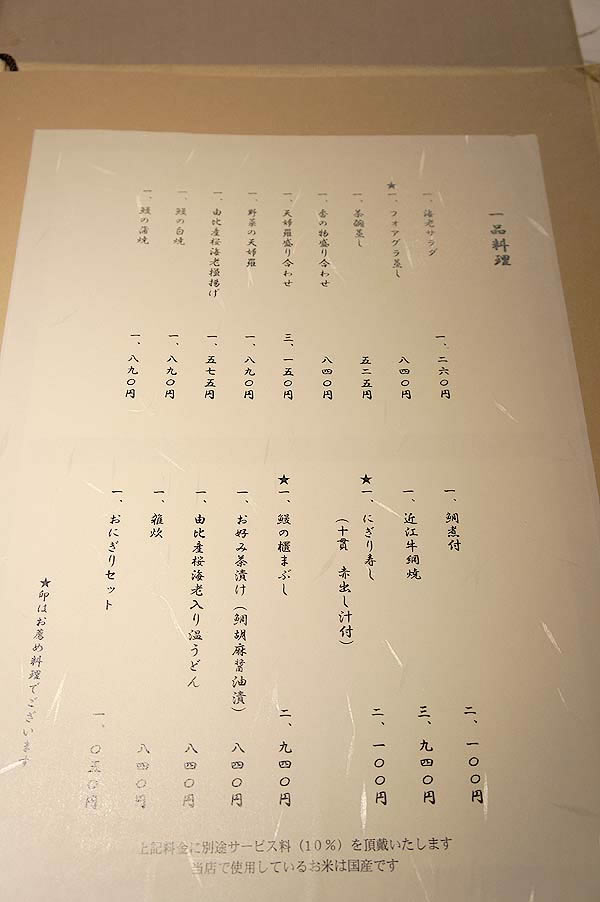 一品料理
一、海老サラダ 一、二六〇円
★一、フォアグラ蒸し 八四〇円
一、茶碗蒸し 五二五円
一、香の物盛り合わせ 八四〇円
一、天婦羅盛り合わせ 三、一五〇円
一、野菜の天婦羅 一、八九〇円
一、由比産桜海老掻揚げ 一、五七五円
一、鰻の白焼 一、八九〇円
一、鰻の蒲焼 一、八九〇円
一、鯛煮付 二、一〇〇円
一、近江牛網焼 三、九四〇円
★一、にぎり寿し 二、一〇〇円
(十貫 赤出し汁付)
★一、鰻の櫃まぶし 二、九四〇円
一、お好み茶漬け(鯛胡麻醤油漬) 八四〇円
一、由比産桜海老入り温うどん 八四〇円
一、雑炊 八四〇円
一、おにぎりセット 一、〇五〇円
★印はお薦め料理でございます
上記料金に別途サービス料(10%)を頂戴いたします
当店で使用しているお米は国産です